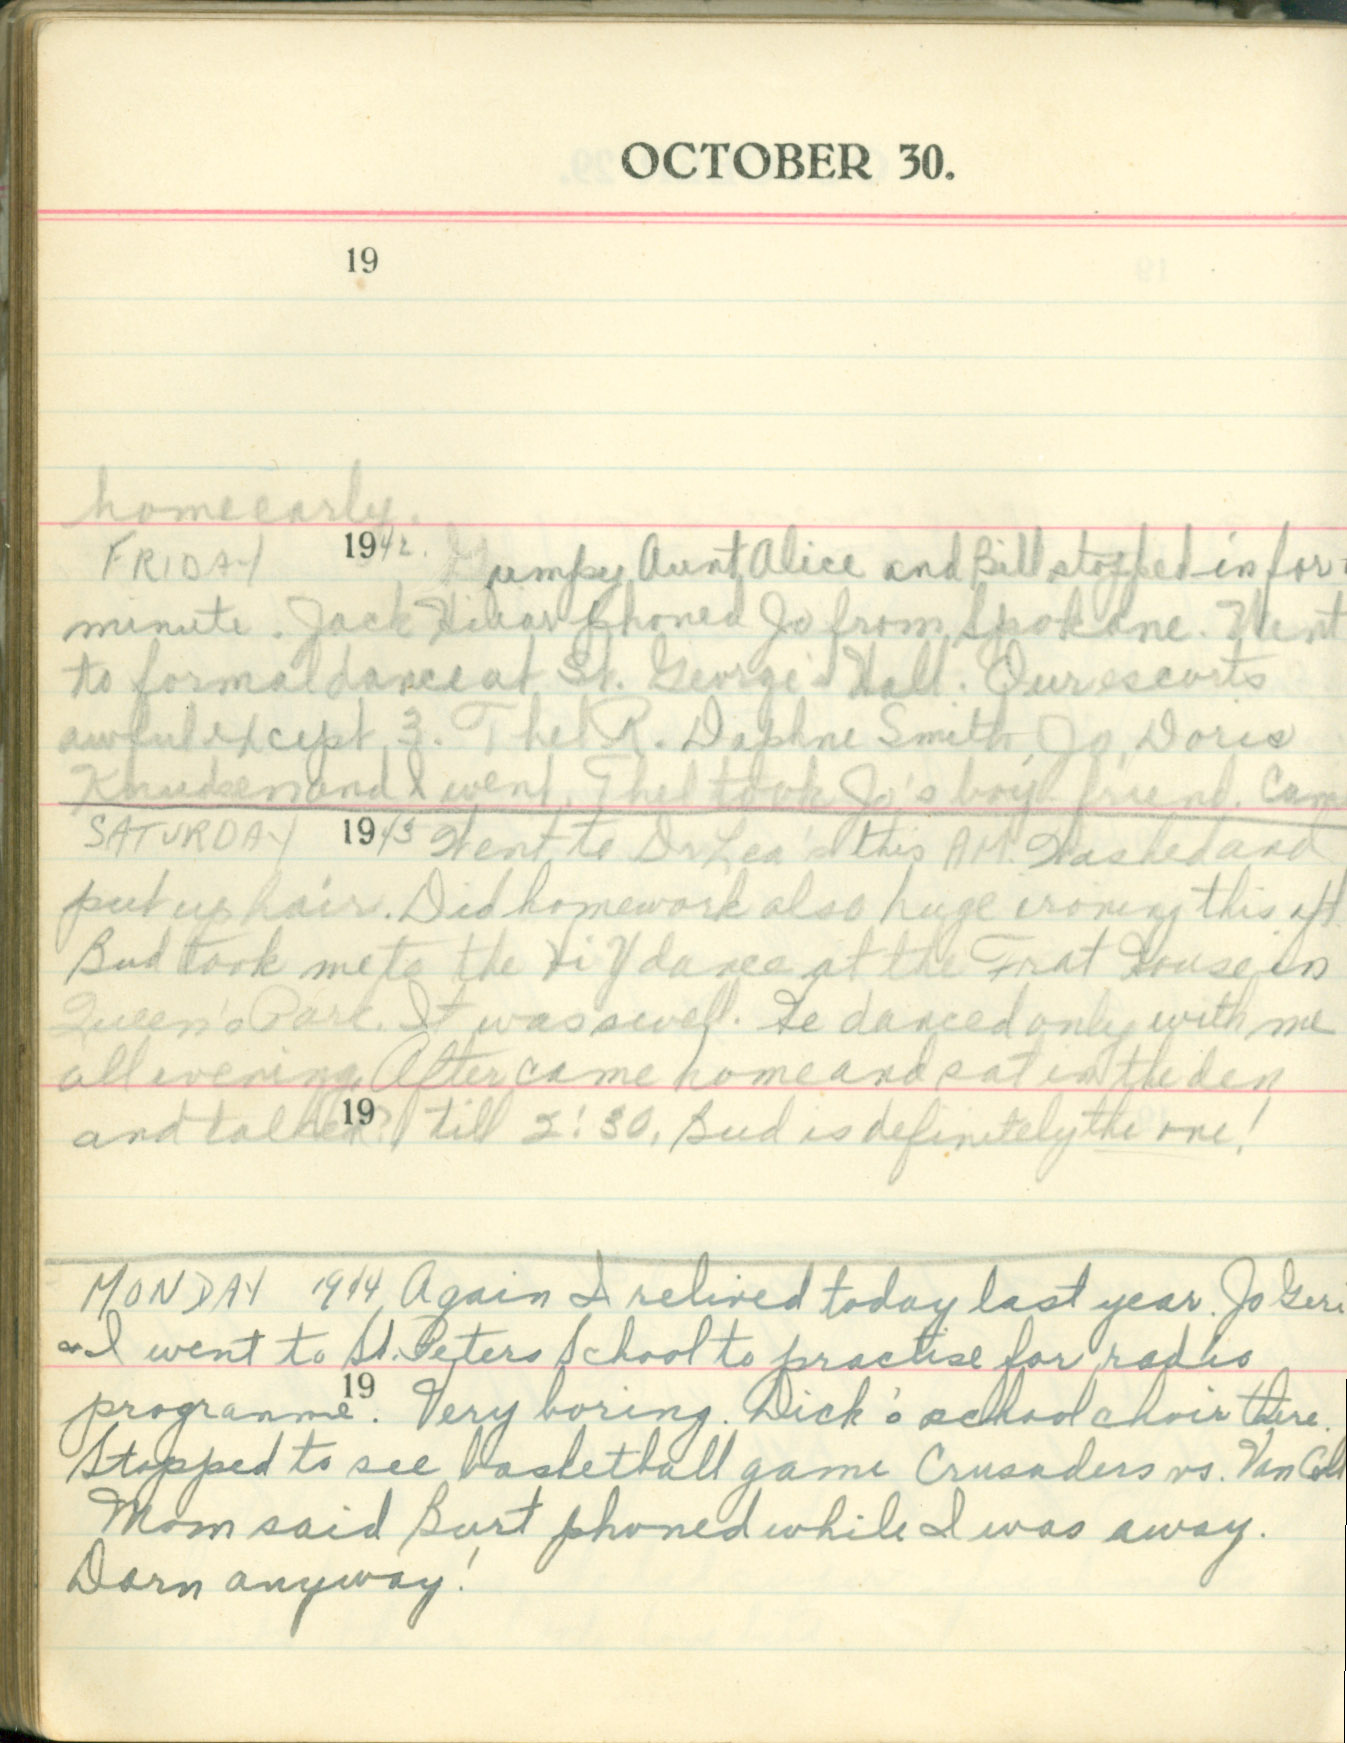 OCTOBER 30.
19
home early.
FRIDAY 1942. Gumpy, Aunt Alice and Bill stopped in for
minute. Jack phoned Jo from Spokane. Went
to formal dance at St. George's Hall. Our escorts
awful except 3. Thel R. Daphne Smith, Jo, Doris
Knudsen and I went. Thel took Jo's boy friend. Cam
SATURDAY 1943 Went to Dr Lea's this AM. Washed and
put up hair. Did homework also huge ironing this aft.
Bud took me to the Hi Y dance at the Frat House in
Queen's Park. It was swell. He danced only with me
all evening. After came home and sat in the den
19
and talked? till 2:30. Bud is definitely the one!
MONDAY 1944 Again I relived today last year. Jo Geri
& I went to St. Peters School to practise for radio
19
programme. Very boring. Dick's school choir there.
Stopped to see basketball game Crusaders vs. Van Coll
Mom said Burt phoned while I was away.
Darn anyway!